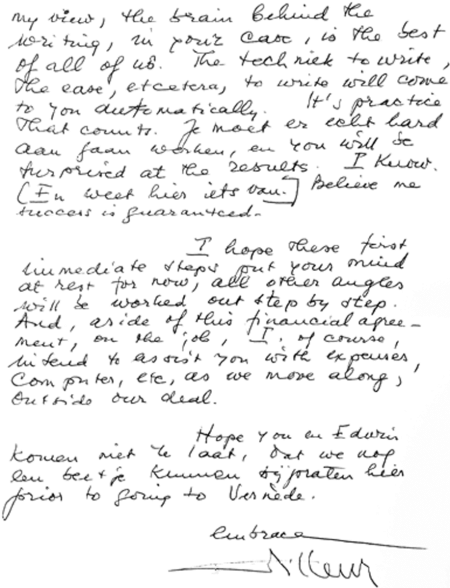 my view, the brain behind the
writing, in your case, is the best
of all of us. The techniek to write,
the ease, etcetera, to write will come
to you automatically. It's practice
that counts. Je moet er echt hard
aan gaan werken, en you will be
surprised at the results. I know.
[En weet hier iets van.] Believe me
success is guaranteed.
I hope these first
immediate steps put your mind
at rest for now, all other angles
will be worked out step by step.
And, aside of this financial agree-
ment, on the job, I, of course,
intend to assist you with expenses,
computer, etc, as we move along,
outside our deal.
Hope you en Edwin
komen niet te laat, dat we nog
een beetje kunnen bijpraten hier
prior to going to Vernède.
embrace